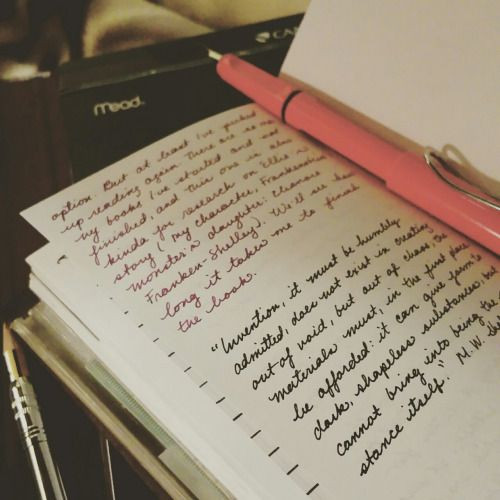 Mead
CA
option. But at least I've picked
up reading again. There are so ma
ny books I've started and not
finished, and this one is also
kinda for research on Ellie's
story (my character, Frankenstein
monster's daughter: Eleanore
Franken-Shelley). We'll see how
long it takes me to finish
the book.
"Invention, it must be humbly
admitted, does not exist in creating
out of void, but out of chaos; the
materials must, in the first place
be afforded: it can give form to
dark, shapeless substances, but
cannot bring into being the
stance itself." M.W. Sh